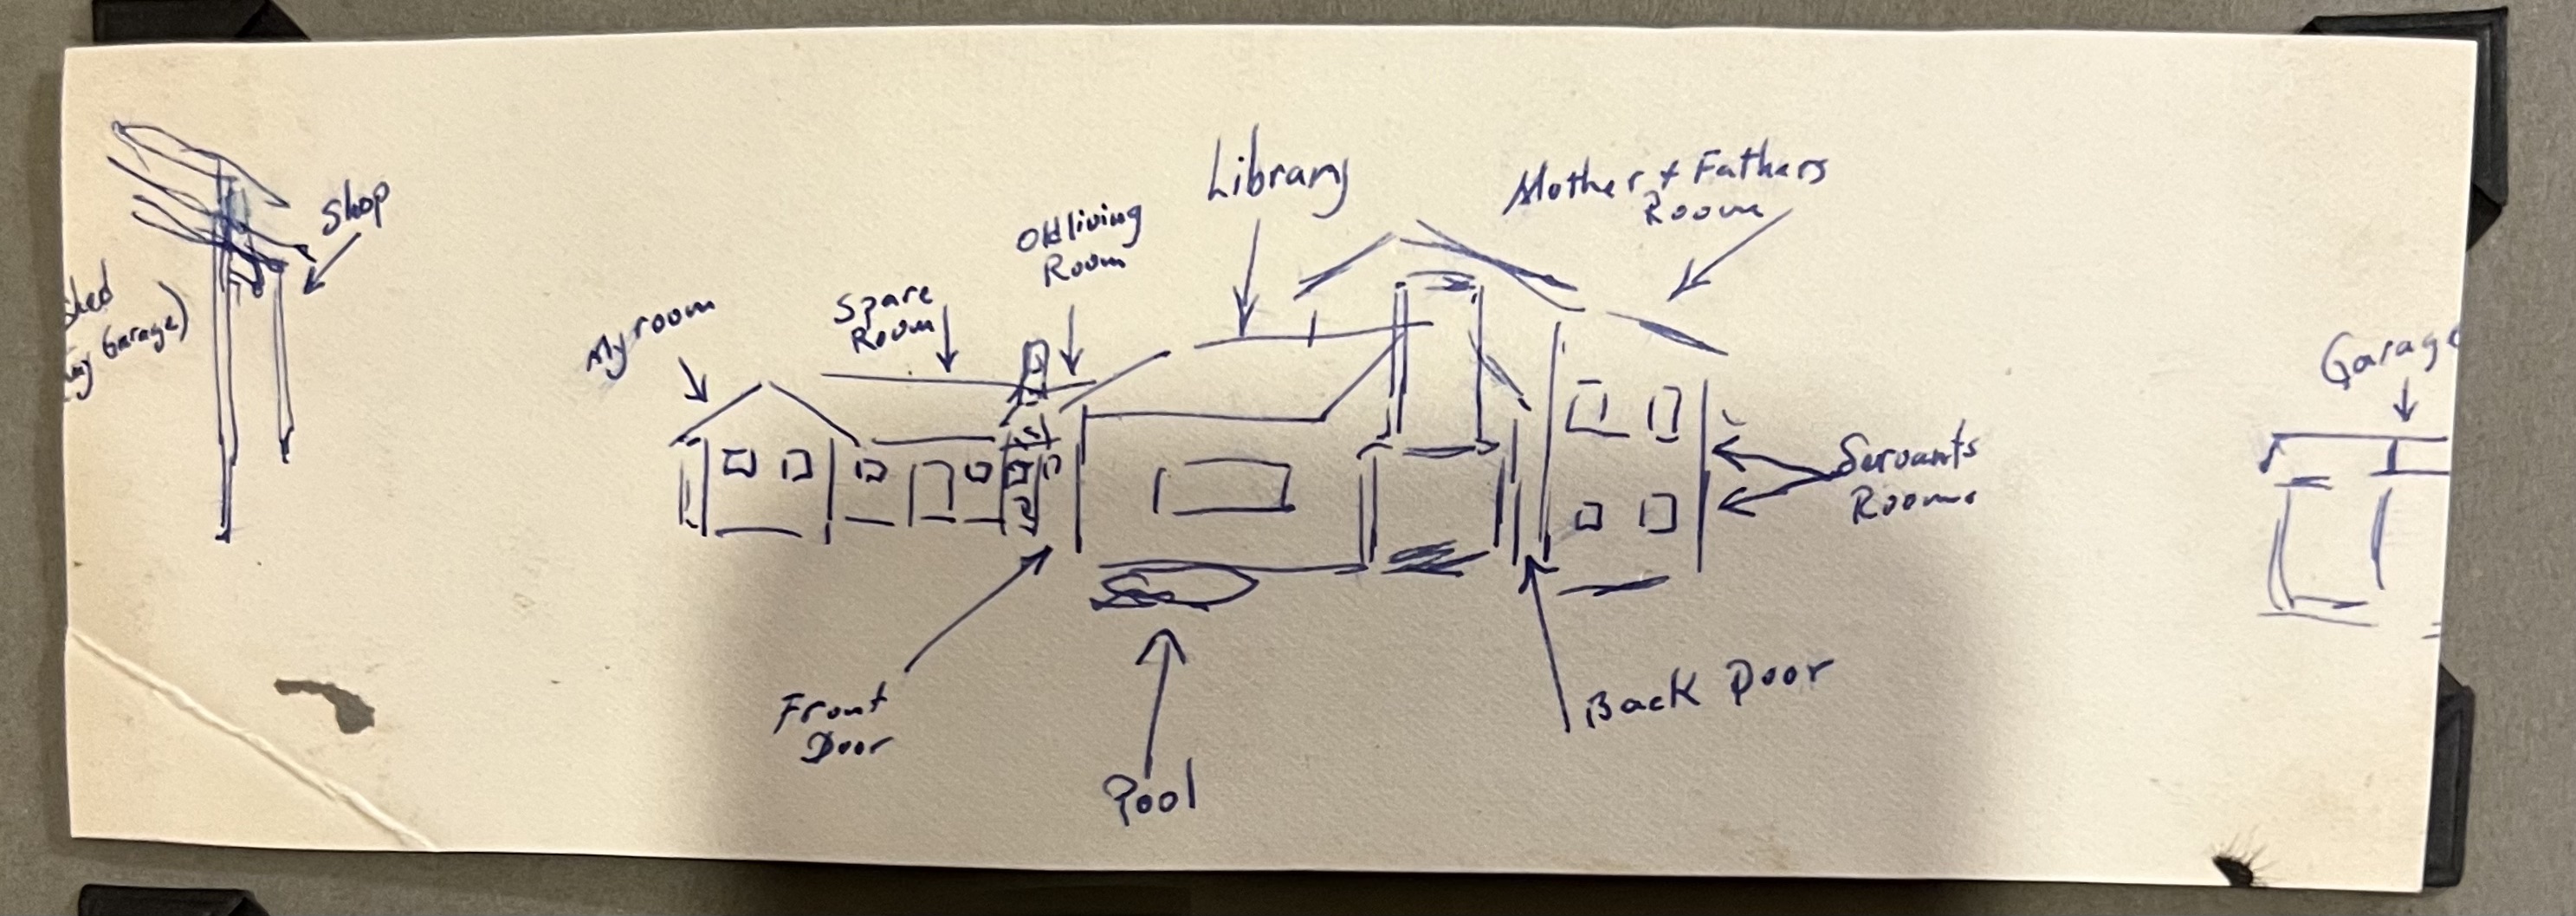 Shop
Shed
Garage)
My room
Spare
Room
Old living
Room
Library
Mother + Fathers
Room
Servants
Rooms
Garage
Front
Door
Pool
Back Door